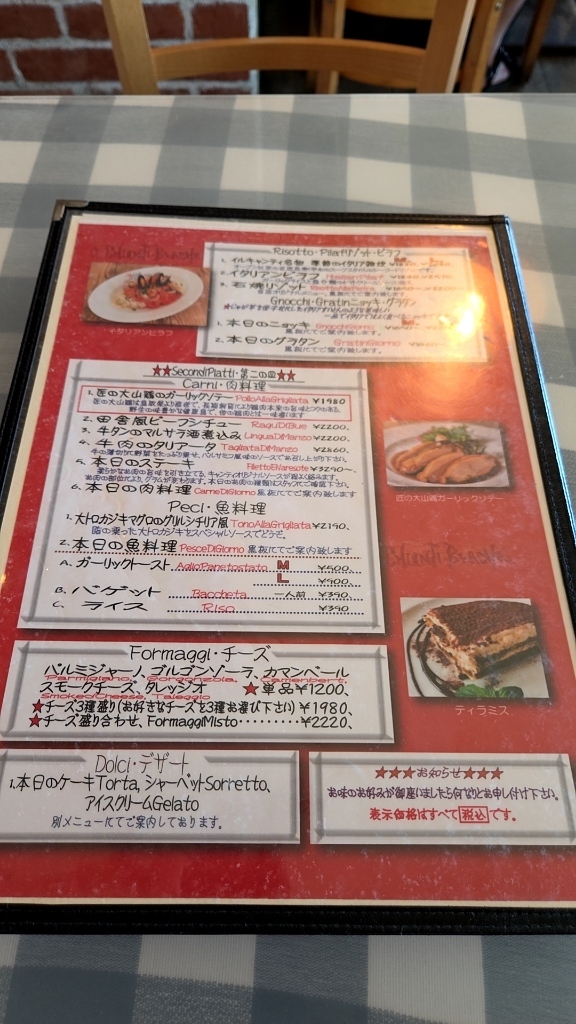 Risotto・Pilafリゾット・ピラフ
1. イルキャンティ名物 季節のイタリア雑炊
2. イタリアンピラフ
3. 石焼リゾット
黒板にてご案内致します。
Gnocchi・Gratinニョッキ・グラタン
1. 本日のニョッキ GnocchiGiorno
黒板にてご案内致します。
2. 本日のグラタン GratinGiorno
黒板にてご案内致します。
イタリアンピラフ
★★SecondiPiatti・第二の皿★★
Carni・肉料理
1. 匠の大山鶏のガーリックソテー PolloAllaGrigliata ¥1980
2. 田舎風ビーフシチュー RaguDiBue ¥2200、
3. 牛タンのマルサラ酒煮込み LinguaDiManzo ¥2200、
4. 牛肉のタリアータ TagliataDiManzo ¥2860、
5. 本日のステーキ ¥3290〜、
6. 本日の肉料理 CarneDiGiorno 黒板にてご案内致します
Peci・魚料理
1. 大トロカジキマグロのグリルシチリア風 TonoAllaGrigliata ¥2190、
脂の乗った大トロカジキをスペシャルソースでどうぞ。
2. 本日の魚料理 PesceDiGiorno 黒板にてご案内致します
A. ガーリックトースト AglioPanetostato M ¥500、
L ¥900、
B. バゲット Baccheta 一人前 ¥390、
C. ライス Riso ¥390
匠の大山鶏ガーリックソテー
Formaggi・チーズ
パルミジャーノ、ゴルゴンゾーラ、カマンベール
Parmigiano, Gorgonzola, Camembert,
スモークチーズ、タレッジオ ★単品¥1200、
SmokedCheese, Taleggio
★チーズ3種盛り(お好きなチーズを3種お選び下さい)¥1980、
★チーズ盛り合わせ、FormaggiMisto・・・・・・・・・¥2220、
ティラミス
Dolci・デザート
1. 本日のケーキTorta, シャーベットSorretto、
アイスクリームGelato
別メニューにてご案内しております。
★★★お知らせ★★★
お味のお好みが御座いましたら何なりとお申し付け下さい。
表示価格はすべて税込です。